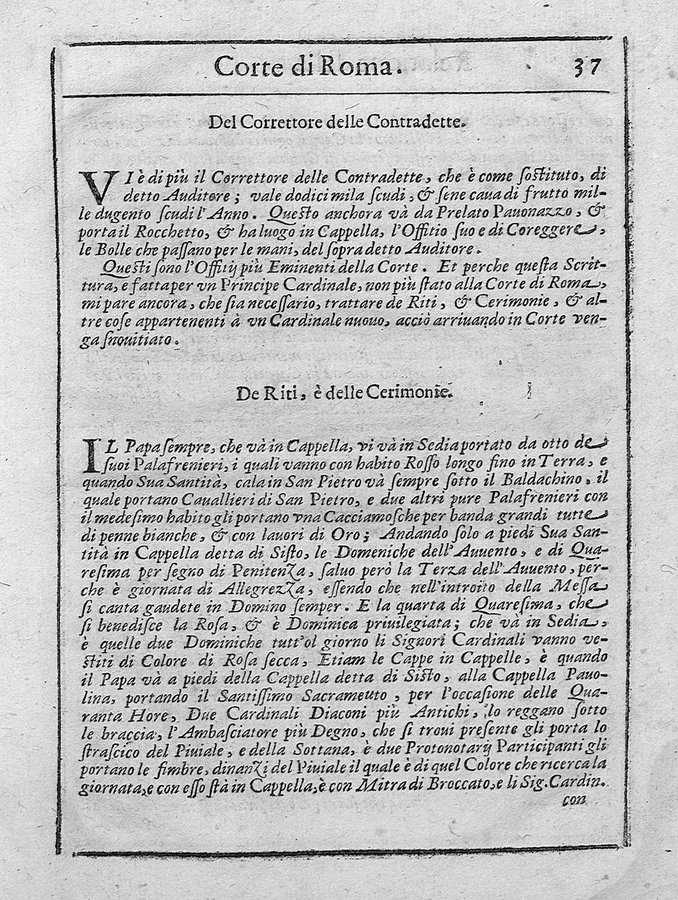 Corte di Roma. 37
Del Correttore delle Contradette.
VI è di più il Correttore delle Contradette, che è come sostituto, di
detto Auditore; vale dodici mila scudi, & sene caua di frutto mil-
le dugento scudi l'Anno. Questo anchora và da Prelato Pauonazzo, &
porta il Rocchetto, & ha luogo in Cappella, l'Offitio suo e di Coreggere,
le Bolle che passano per le mani, del sopra detto Auditore.
Questi sono l'Offitij più Eminenti della Corte. Et perche questa Scrit-
tura, e fatta per vn Principe Cardinale, non più stato alla Corte di Roma,
mi pare ancora, che sia necessario, trattare de Riti, & Cerimonie, & al-
tre cose appartenenti à vn Cardinale nuouo, acciò arriuando in Corte ven-
ga snouitiato.
De Riti, è delle Cerimonie.
IL Papa sempre, che và in Cappella, vi và in Sedia portato da otto de
suoi Palafrenieri, i quali vanno con habito Rosso longo fino in Terra, e
quando Sua Santità, cala in San Pietro và sempre sotto il Baldachino, il
quale portano Cauallieri di San Pietro, e due altri pure Palafrenieri con
il medesimo habito gli portano vna Cacciamosche per banda grandi tutte
di penne bianche, & con lauori di Oro; Andando solo a piedi Sua San-
tità in Cappella detta di Sisto, le Domeniche dell'Auuento, e di Qua-
resima per segno di Penitenza, saluo però la Terza dell'Auuento, per-
che è giornata di Allegrezza, essendo che nell'introito della Messa
si canta gaudete in Domino semper. E la quarta di Quaresima, che
si benedisce la Rosa, & è Dominica priuilegiata; che và in Sedia,
è quelle due Dominiche tutt'ol giorno li Signori Cardinali vanno ve-
stiti di Colore di Rosa secca, Etiam le Cappe in Cappelle, è quando
il Papa và a piedi della Cappella detta di Sisto, alla Cappella Pauo-
lina, portando il Santissimo Sacrameuto, per l'occasione delle Qua-
ranta Hore, Due Cardinali Diaconi più Antichi, lo reggano sotto
le braccia, l'Ambasciatore più Degno, che si troui presente gli porta lo
strascico del Piuiale, e della Sottana, è due Protonotarij Participanti gli
portano le fimbre, dinanzi del Piuiale il quale è di quel Colore che ricerca la
giornata, e con esso stà in Cappella, è con Mitra di Broccato, e li Sig. Cardin.
con